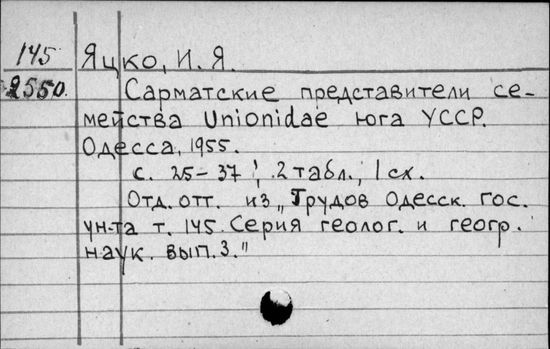 145 Яцко, И. Я.
2550. Сарматские представители се-
мейства Unionidae юга УССР.
Одесса, 1955.
с. 25-37; 2 табл., 1 сх.
Отд. отт. из „Трудов Одесск. гос.
ун-та т. 145. Серия геолог. и геогр.
наук. вып. 3."